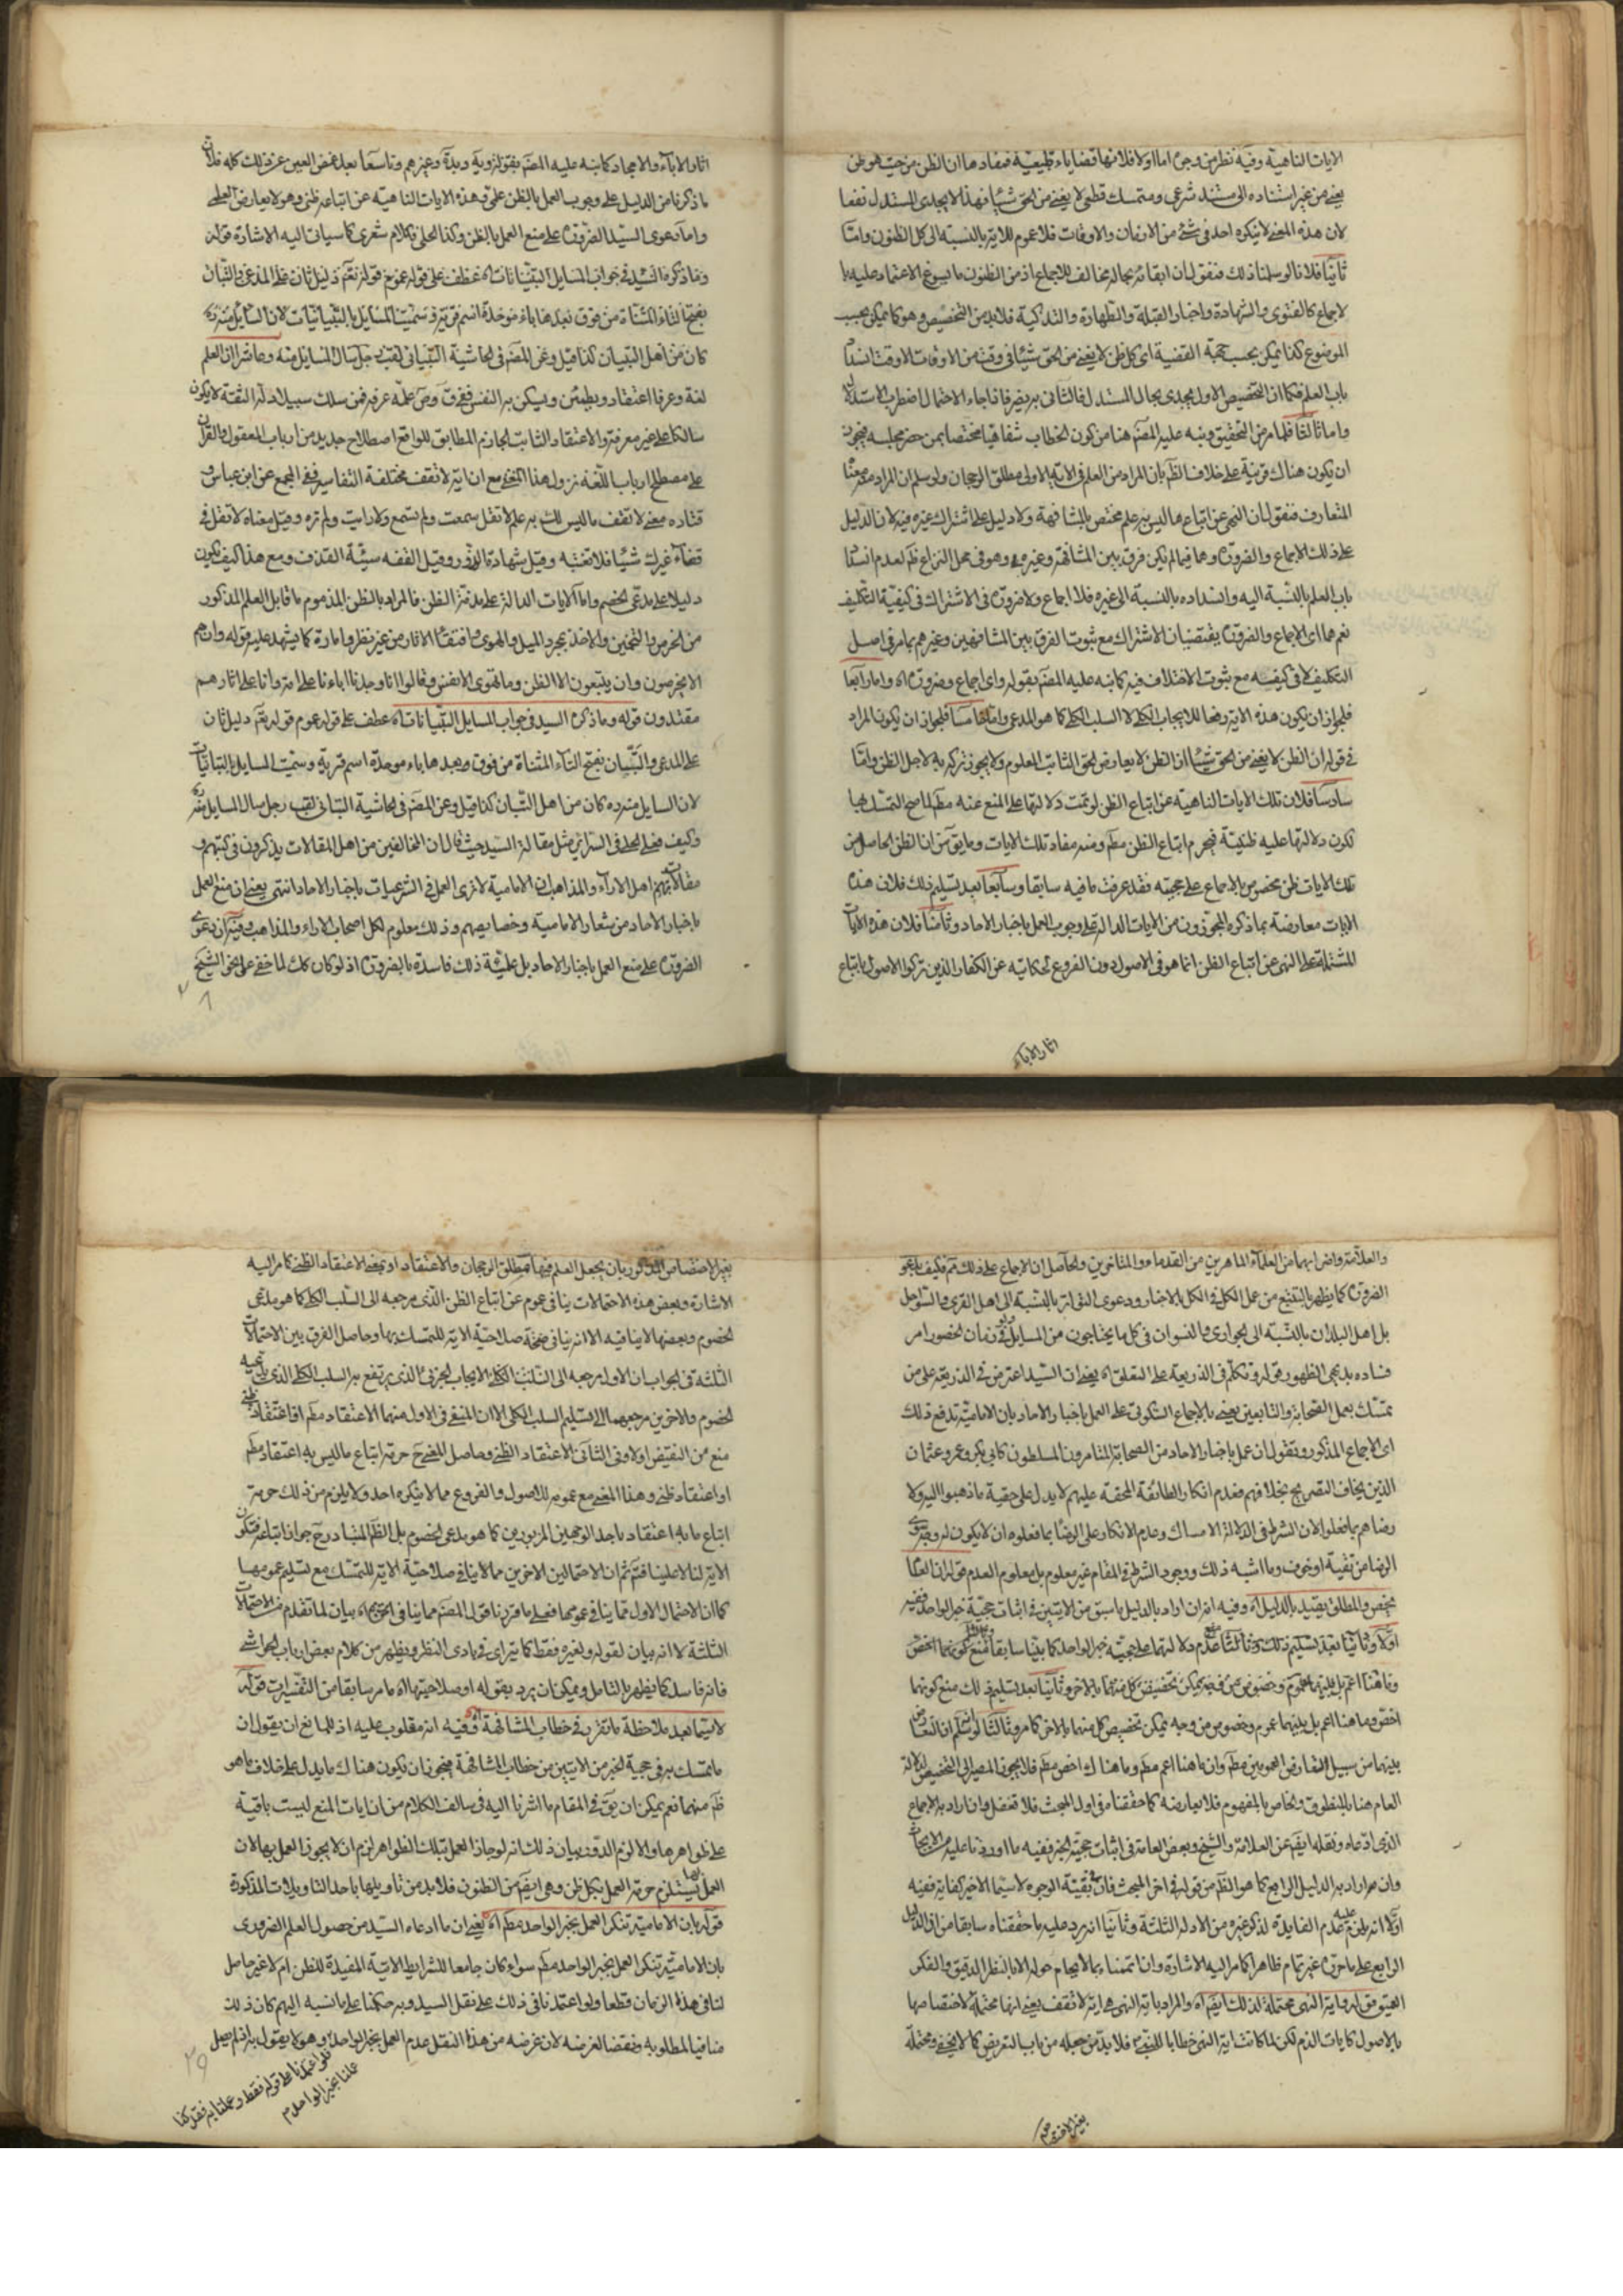 الايات الناهية وفيه نظر من وجوه اما اولا فلانها قضايا طبيعية فمفادها ان الظن من حيث هو ظن
يعني من غير استناده الى مستند شرعي ومتمسك قطعي لا يغني من الحق شيئا فهذا لا يجدى المستدل نفعا
لان هذه المعنى لا ينكره احد في شئ من الازمان والاوقات فلا عموم للاية بالنسبة الى كل الظنون واما
ثانيا فلانا لو سلمنا ذلك فنقول ان ابقائه بحاله مخالف للاجماع اذ من الظنون ما يسوغ الاعتماد عليه با
لاجماع كالفتوى والشهادة واخبار القبلة والطهارة والتذكية فلابد من التخصيص وهو كما يمكن بحسب
الموضوع كذا يمكن بحسب جهة القضية اى كل ظن لا يغني من الحق شيئا في وقت من الاوقات الا وقت انسداد
باب العلم فكما ان التخصيص الاول يجدى بحال المستدل فالثاني يضره فاذا جاء الاحتمال اضطرب الاستدلال
واما ثالثا فلما مر من التحقيق ونبه عليه المصنف هنا من كون الخطاب شفاهيا مختصا بمن حضر مجلسه فيجوز
ان يكون هناك قرينة على خلاف الظاهر بان المراد من العلم في الاية الاولى مطلق الرجحان ولو سلم ان المراد معناه
المتعارف فنقول ان النهي عن اتباع ما ليس به علم مختص بالمشافهة ولا دليل على اشتراك غيره فيه لان الدليل
على ذلك الاجماع والضرورة وهما فيما لم يكن فرق بين المشافهة وغيره وهو في محل النزاع ظاهر لعدم انسداد
باب العلم بالنسبة اليه وانسداده بالنسبة الى غيره فلا اجماع ولا ضرورة في الاشتراك في كيفية التكليف
نعم هما اى الاجماع والضرورة يقتضيان الاشتراك مع ثبوت الفرق بين المشافهين وغيرهم بما مر في اصل
التكليف لا في كيفيته مع ثبوت الاختلاف فيه كما نبه عليه المصنف بقوله واى اجماع وضرورة اه واما رابعا
فلجواز ان يكون هذه الاية رفعا للايجاب الكلي لا السلب الكلي كما هو المدعى واما خامسا فلجواز ان يكون المراد
في قوله ان الظن لا يغني من الحق شيئا ان الظن لا يعارض الحق الثابت المعلوم ولا يجوز تركه به لاجل الظن واما
سادسا فلان تلك الايات الناهية عن اتباع الظن لو تمت دلالتها على المنع عنه مطلقا لما صح التمسك بها
لكون دلالتها عليه ظنية فيحرم اتباع الظن مطلقا ومنه مفاد تلك الايات وما يقال من ان الظن الحاصل من
تلك الايات ظن مخصوص بالاجماع على حجيته فقد عرفت ما فيه سابقا وسابعا بعد تسليم ذلك فلان هذه
الايات معارضة بما ذكره المجوزون من الايات الدالة على وجوب العمل باخبار الاحاد وثامنا فلان هذه الايات
المشتملة على النهي عن اتباع الظن انما هو في الاصول دون الفروع لحكايته عن الكفار الذين تركوا الاصول باتباع
اثار الاباء
اثار الاباء والاجداد كما نبه عليه المصنف بقوله
ما ذكرنا من الدليل على وجوب العمل بالظن علمي وهذه الايات الناهية عن اتباعه ظني وهو لا يعارض العلمي
واما دعوى السيد الضرورة على منع العمل بالظن وكذا الحلي فكلام شعري كما سياتي اليه الاشارة قوله
وما ذكره السيد في جواب المسايل التبانيات اه عطف على قوله عموم قوله تعالى دليل ثان على المدعى والتبان
بفتح التاء المثناة من فوق بعدها باء موحدة اسم قرية وسميت المسايل بالتبانيات لان السايل منه ره
كان من اهل التبان كذا قيل وعن المصنف في الحاشية التباني لقب رجل سال المسايل منه وعاشرا ان العلم
لغة وعرفا اعتقاد ويطمئن ويسكن به النفس ففي ق وص علمه عرفه فمن سلك سبيلا دله الثقة لا يكون
سالكا على غير معرفة والاعتقاد الثابت الجازم المطابق للواقع اصطلاح جديد من ارباب المعقول والقران
على مصطلح ارباب اللغة نزول هذا المعنى مع ان اية لا تقف مختلفة التفاسير ففي المجمع عن ابن عباس و
قتاده معنى لا تقف ما ليس لك به علم لا تقل سمعت ولم تسمع ولا رايت ولم تره وقيل معناه لا تقل في
قفاء غيرك شيئا فلا تغتبه وقيل شهادة الزور وقيل القفه سيئة القذف ومع هذا كيف يكون
دليلا على مدعى الخصم واما الايات الدالة على مذمة الظن فالمراد بالظن المذموم ما قابل العلم المذكور
من الخرص والتخمين والاخذ بمجرد الميل والهوى واقتفاء الاثار من غير نظر وامارة كما يشهد عليه قوله وان هم
الا يخرصون وان يتبعون الا الظن وما تهوى الانفس وقالوا انا وجدنا اباءنا على امة وانا على اثارهم
مقتدون قوله وما ذكره السيد في جواب المسايل التبانيات اه عطف على قوله عموم قوله تعالى دليل ثان
على المدعى والتبان بفتح التاء المثناة من فوق وبعدها باء موحدة اسم قرية وسميت المسايل بالتبانيات
لان السايل منه ره كان من اهل التبان كذا قيل وعن المصنف في الحاشية التباني لقب رجل سال المسايل منه
وكيف في السرائر مثل مقالة السيد حيث قال ان المخالفين من اهل المقالات يذكرون في كتبهم
مقالاتهم اهل الاراء والمذاهب ان الامامية لا ترى العمل في الشرعيات باخبار الاحاد انتهى يعني ان منع العمل
باخبار الاحاد من شعار الامامية وخصايصهم وذلك معلوم لكل اصحاب الاراء والمذاهب وفيه ان دعوى
الضرورة على منع العمل باخبار الاحاد بل علمية ذلك فاسدة بالضرورة اذ لو كان كك لما خفي على الشيخ
والعلامة واضرابهما من العلماء الماهرين من القدماء والمتاخرين والحاصل ان الاجماع على ذلك لم يتم فكيف بدعوى
الضرورة كما يظهر بالتتبع من عمل الكل في الكل بالاخبار ودعوى التواتر بالنسبة الى اهل القرى والسواحل
بل اهل البلدان بالنسبة الى الجوارى والنسوان في كل ما يحتاجون من المسايل ولو في زمان الحضور امر
فساده بديهي الظهور قوله وتكلم في الذريعة على التعلق اه يعني ان السيد اعترض في الذريعة على من
تمسك بعمل الصحابة والتابعين يعني بالاجماع السكوتي على العمل باخبار الاحاد بان الامامية تدفع ذلك
اى الاجماع المذكور وتقول ان عمل باخبار الاحاد من الصحابة المتامرون المسلطون كابي بكر وعمر وعثمان
الذين يخاف التصريح بخلافهم فعدم انكار الطائفة المحقة عليهم لا يدل على حقية ما ذهبوا اليه ولا
رضاهم بما فعلوا لان الشرط في الدلالة الامساك وعدم الانكار على الرضا بما فعلوه ان لا يكون له وجه سوى
الرضا من تقية او خوف وما اشبه ذلك ووجود الشرط في المقام غير معلوم بل معلوم العدم قوله ان العام
يخص والمطلق يقيد بالدليل اه وفيه انه ان اراد بالدليل ما سبق من الايتين في اثبات حجية خبر الواحد ففيه
اولا وثانيا بعد تسليم ذلك عدم دلالتهما على حجية خبر الواحد كما بينا سابقا منع كونهما اخص
وما هنا اعم بل بينهما عموم وخصوص من وجه يمكن تخصيص كل منهما بالاخر وثانيا بعد تسليم ذلك منع كونهما
اخص وما هنا اعم بل بينهما عموم وخصوص من وجه يمكن تخصيص كل منهما بالاخر كما مر وثالثا لو سلم ان التعارض
بينهما من سبيل التعارض العمومين مطلقا وان ما هنا اعم مطلقا وما هناك اخص مطلقا فلا يجوز المصير الى التخصيص لدلالة
العام هنا بالمنطوق والخاص بالمفهوم فلا يعارضه كما حققناه في اول المبحث فلا تغفل وان اراد به الاجماع
الذى ادعاه ونقله ايضا عن العلامة والشيخ وبعض العامة في اثبات حجية الخبر ففيه ما اوردنا عليه من الابحاث
وان اراد به الدليل الرابع كما هو الظاهر من قوله في اخر المبحث فان في بقية الوجوه لا سيما الاخير كفاية ففيه
اولا انه يلزم عليه عدم الفايدة لذكر غيره من الادلة الثلثة وثانيا انه يرد عليه ما حققناه سابقا من ان الدليل
الرابع على ما حرره غير تمام ظاهرا كما مر اليه الاشارة وان اتممناه بما لا يحام حوله الا بالنظر الدقيق والفكر
العميق قوله فاية النهي محتملة لذلك ايضا اه والمراد باية النهي هي اية لا تقف يعني انها محتملة لاختصاصها
بالاصول كايات الذم لكن لما كانت اية النهي خطابا للنبي ص فلا بد من جعله من باب التعريض كما لا يخفى ومحتملة
بغير الاختصاص
بغير الاختصاص المذكور بان يجعل العلم فيها مطلق الرجحان والاعتقاد او بمعنى الاعتقاد الظني كما مر اليه
الاشارة وبعض هذه الاحتمالات ينافي عموم عن اتباع الظن الذى مرجعه الى السلب الكلي كما هو مدعى
الخصوم وبعضها لا ينافيه الا انه ينافي صحة صلاحية الاية للتمسك بها وحاصل الفرق بين الاحتمالات
الثلثة في الجواب ان الاول مرجعه الى السلب الكلي الايجاب الجزئي الذى يرتفع به السلب الكلي الذى يدعيه
الخصوم والاخرين مرجعهما الى تسليم السلب الكلي الا ان المنفي في الاول منهما الاعتقاد مطلقا او اعتقاد ظني
منع من النقيض او لا وفي الثاني الاعتقاد الظني وحاصل المعنى ح حرمة اتباع ما ليس به اعتقاد مطلقا
او اعتقاد ظني وهذا المعنى مع عمومه للاصول والفروع مما لا ينكره احد ولا يلزم من ذلك حرمة
اتباع ما به اعتقاد باحد الوجهين المزبورين كما هو مدعى الخصوم بل الظاهر المتبادر ح جواز اتباعه فتكون
الاية لنا لا علينا فتم ثم ان الاحتمالين الاخرين مما لا ينافي صلاحية الاية للتمسك مع تسليم عمومها
كما ان الاحتمال الاول مما ينافي عمومها فعلى ما قررنا قول المصنف مما ينافي الحجية اه بيان لما تقدم من الاحتمالات
الثلثة لا انه بيان لقوله ولغيره فقط كما يتراى في بادى النظر ويظهر من كلام بعض ارباب الحواشي
فانه فاسد كما يظهر بالتامل ويمكن ان يرد بقوله او صلاحيتها اه ما مر سابقا من التفسيرات قوله
لا سيما بعد ملاحظة ما تقرر في خطاب المشافهة اه وفيه انه مقلوب عليه اذ للمانع ان يقول ان
ما تمسك به في حجية الخبر من الايتين من خطاب المشافهة فيجوز ان يكون هناك ما يدل على خلاف ما هو
ظاهر منهما نعم يمكن ان يق في المقام ما اشرنا اليه في سالف الكلام من ان ايات المنع ليست باقية
على ظواهرها والا لزم الدور بيان ذلك انه لو جاز العمل بتلك الظواهر لزم ان لا يجوز العمل بها لان
العمل بها يستلزم حرمة العمل بكل ظن وهي ايضا من الظنون فلابد من تاويلها باحد التاويلات المذكورة
قوله بان الامامية تنكر العمل بخبر الواحد مطلقا اه يعني ان ما ادعاه السيد من حصول العلم الضرورى
بان الامامية تنكر العمل بخبر الواحد مطلقا سواء كان جامعا للشرايط الاتية المفيدة للظن ام لا غير حاصل
لنا في هذا الزمان قطعا ولو اعتمدنا في ذلك على نقل السيد وبه حكمنا على ما نسبه اليهم كان ذلك
منافيا لمطلوبه ونقضا لغرضه لان غرضه من هذا النقل عدم العمل بخبر الواحد وهو لا يقول به
فلو اعتمدنا على قوله فقط وعملنا به فقد كنا
عملنا بخبر الواحد